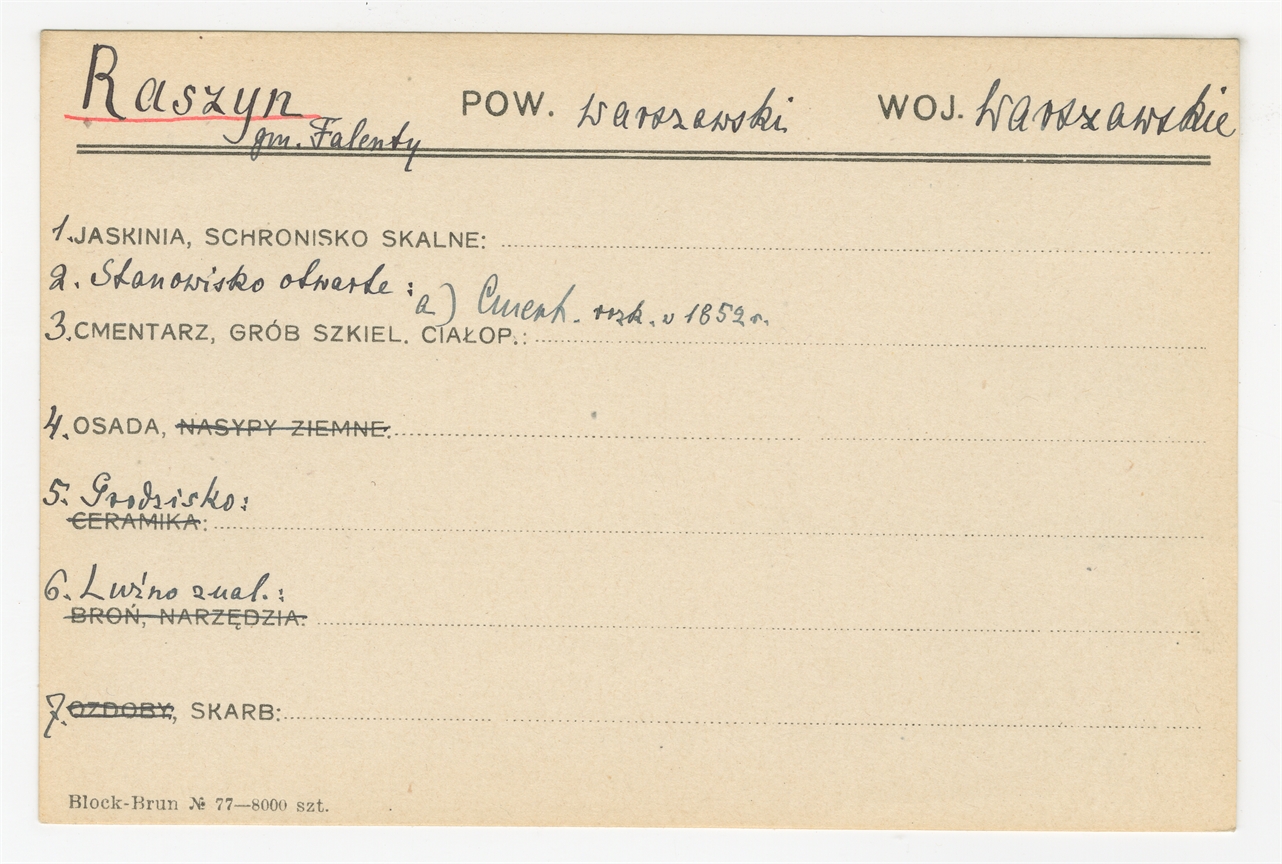 Raszyn POW. warszawski WOJ. Warszawskie
gm. Falenty
1. JASKINIA, SCHRONISKO SKALNE:
2. Stanowisko otwarte:
a) Cment. rozk. w 1852 r.
3. CMENTARZ, GRÓB SZKIEL. CIAŁOP.:
4. OSADA, NASYPY ZIEMNE:
5. Grodzisko:
CERAMIKA:
6. Luźno znal.:
BROŃ, NARZĘDZIA:
7. OZDOBY, SKARB:
Block-Brun № 77—8000 szt.